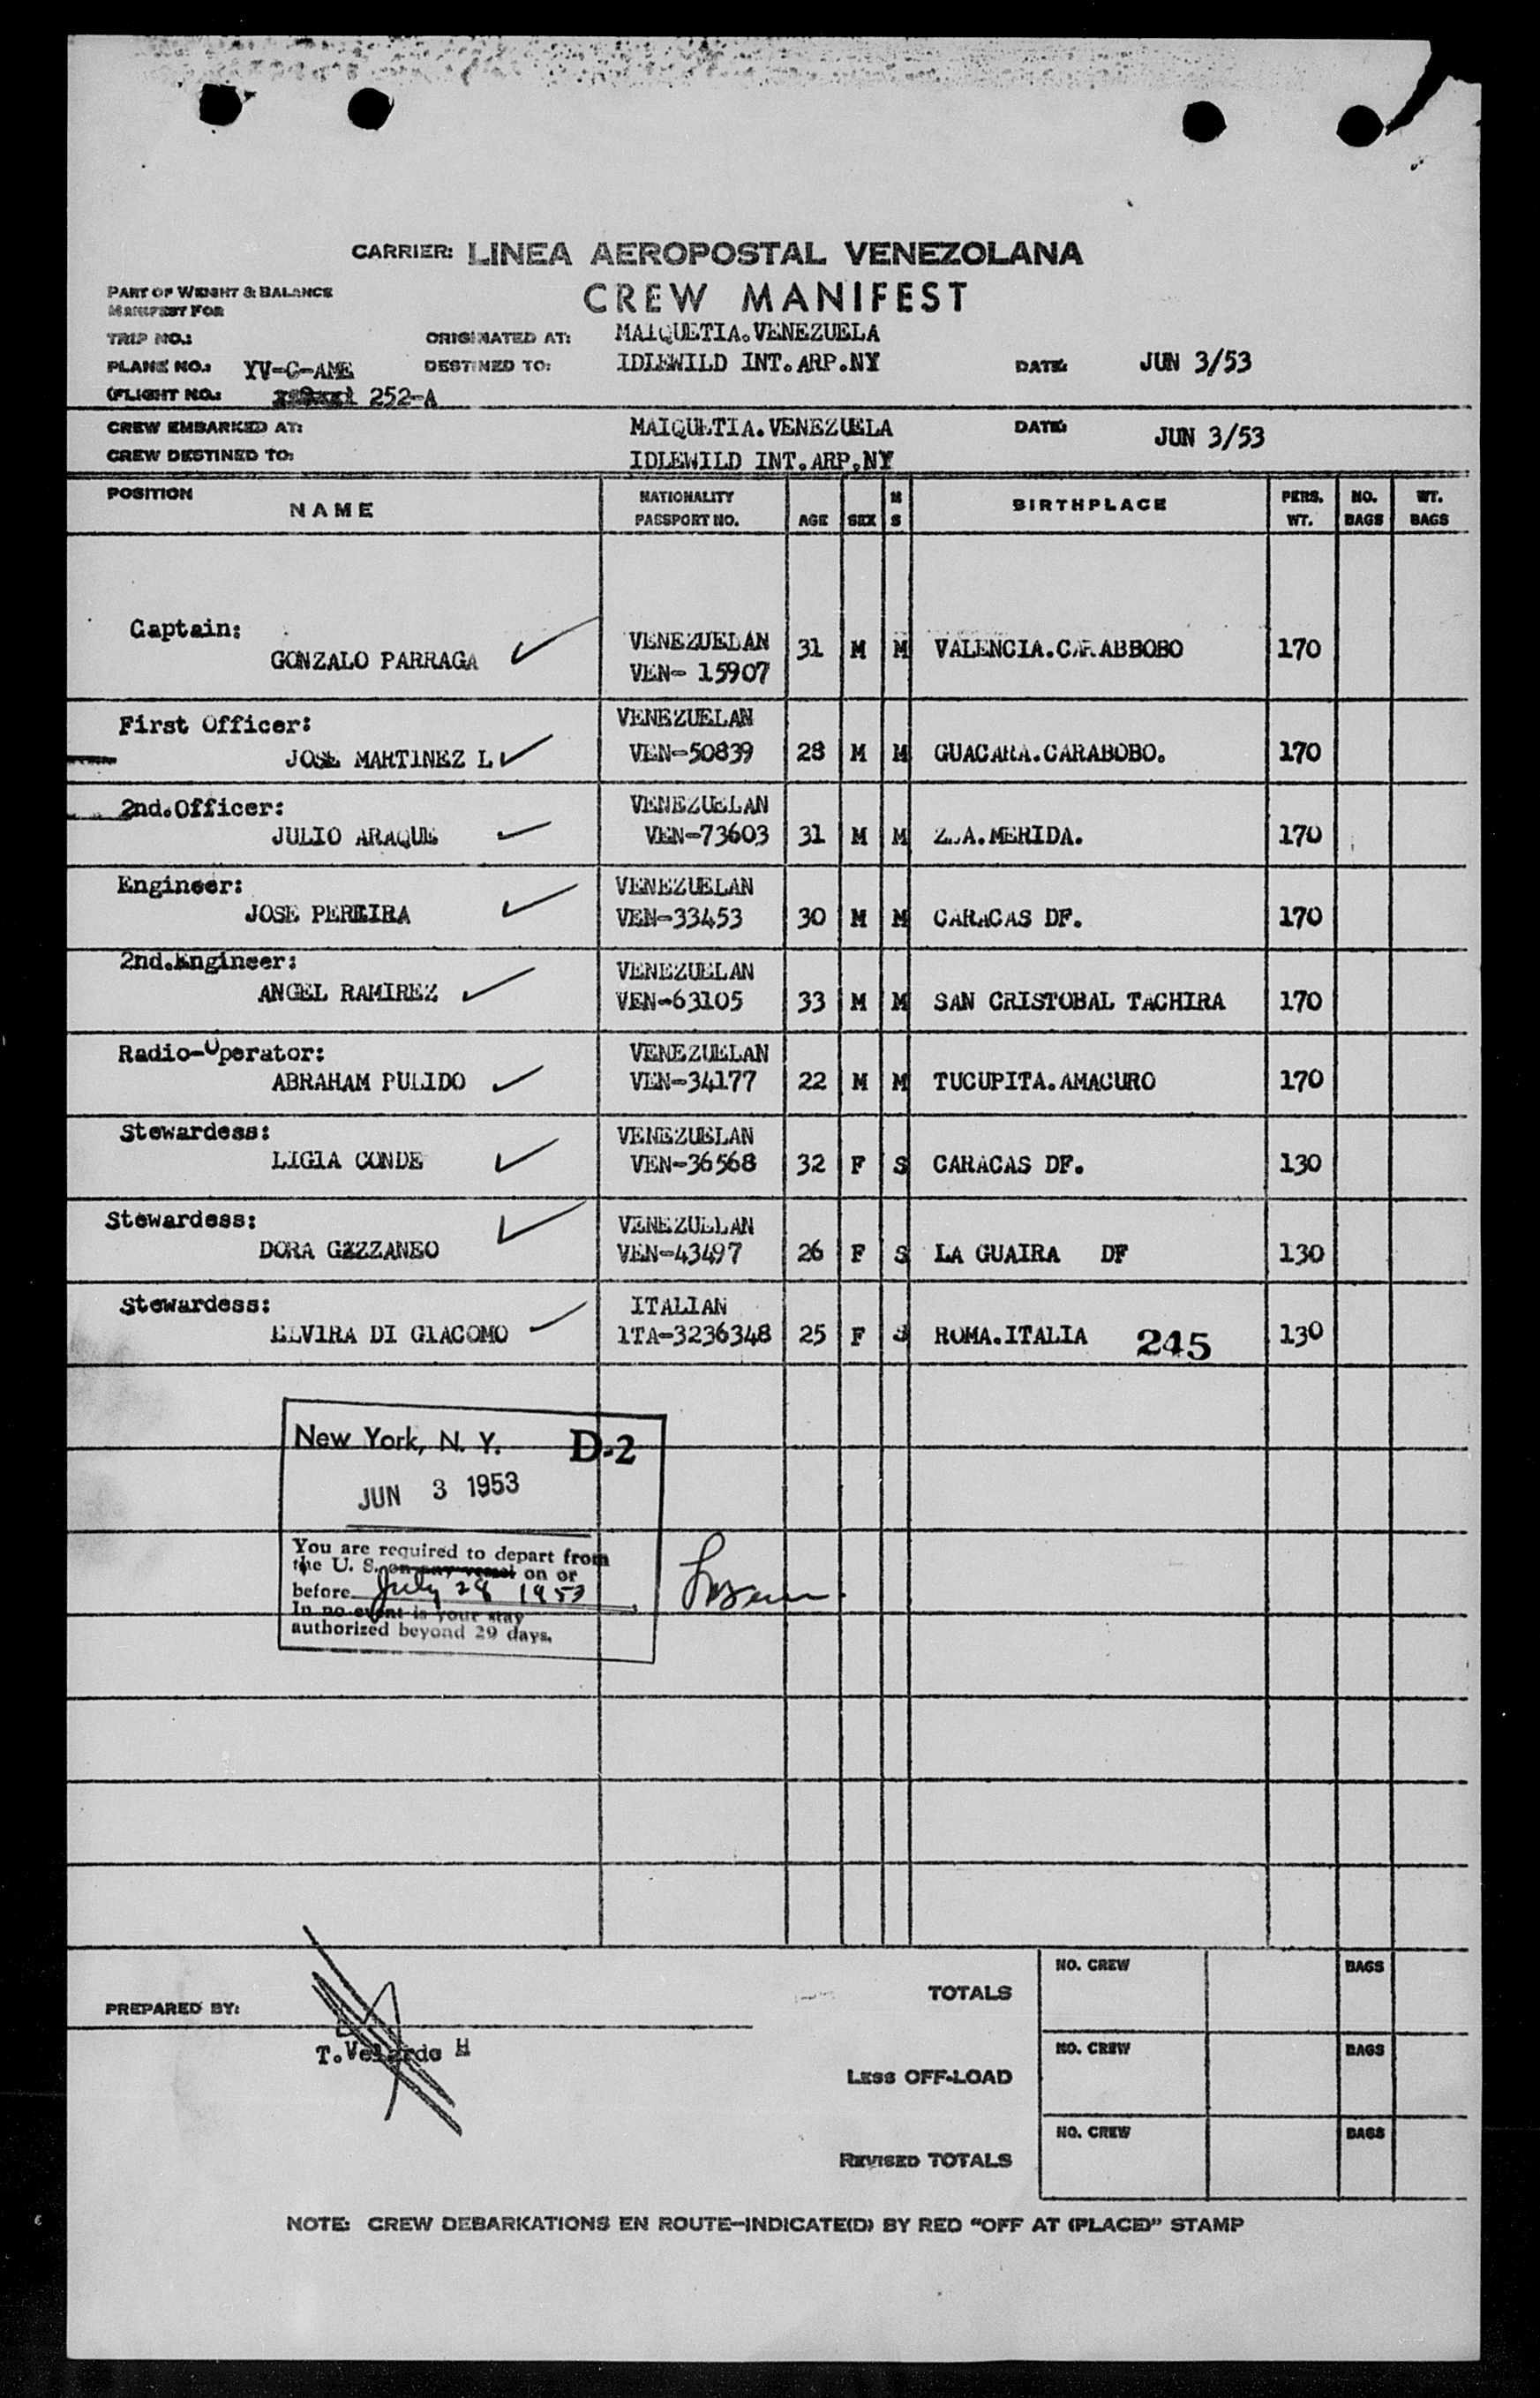 CARRIER: LINEA AEROPOSTAL VENEZOLANA
CREW MANIFEST
PART OF WEIGHT & BALANCE
MANIFEST FOR
TRIP NO.: ORIGINATED AT: MAIQUETIA.VENEZUELA
PLANE NO.: YV-C-AME DESTINED TO: IDLEWILD INT.ARP.NY DATE: JUN 3/53
(FLIGHT NO.: 252-A
CREW EMBARKED AT: MAIQUETIA.VENEZUELA DATE: JUN 3/53
CREW DESTINED TO: IDLEWILD INT.ARP.NY
POSITION NAME NATIONALITY PASSPORT NO. AGE SEX M S BIRTHPLACE PERS. WT. NO. BAGS WT. BAGS
Captain: VENEZUELAN
GONZALO PARRAGA VEN- 15907 31 M M VALENCIA.CARABBOBO 170
First Officer: VENEZUELAN
JOSE MARTINEZ L VEN-50839 28 M M GUACARA.CARABOBO. 170
2nd.Officer: VENEZUELAN
JULIO ARAQUE VEN-73603 31 M M MERIDA. 170
Engineer: VENEZUELAN
JOSE PEREIRA VEN-33453 30 M M CARACAS DF. 170
2nd.Engineer: VENEZUELAN
ANGEL RAMIREZ VEN-63105 33 M M SAN CRISTOBAL TACHIRA 170
Radio-Operator: VENEZUELAN
ABRAHAM PULIDO VEN-34177 22 M M TUCUPITA.AMACURO 170
Stewardess: VENEZUELAN
LIGIA CONDE VEN-36568 32 F S CARACAS DF. 130
Stewardess: VENEZUELAN
DORA VEN-43497 26 F S LA GUAIRA DF 130
Stewardess: ITALIAN
ELVIRA DI GIACOMO ITA-3236348 25 F S ROMA.ITALIA 245 130
New York, N. Y. D-2
JUN 3 1953
You are required to depart from
the U. S. on any vessel on or
before July 28 1953
In no event is your stay
authorized beyond 29 days.
PREPARED BY:
T.Velarde H
TOTALS NO. CREW BAGS
LESS OFF-LOAD NO. CREW BAGS
REVISED TOTALS NO. CREW BAGS
NOTE: CREW DEBARKATIONS EN ROUTE-INDICATE(D) BY RED "OFF AT (PLACE)" STAMP